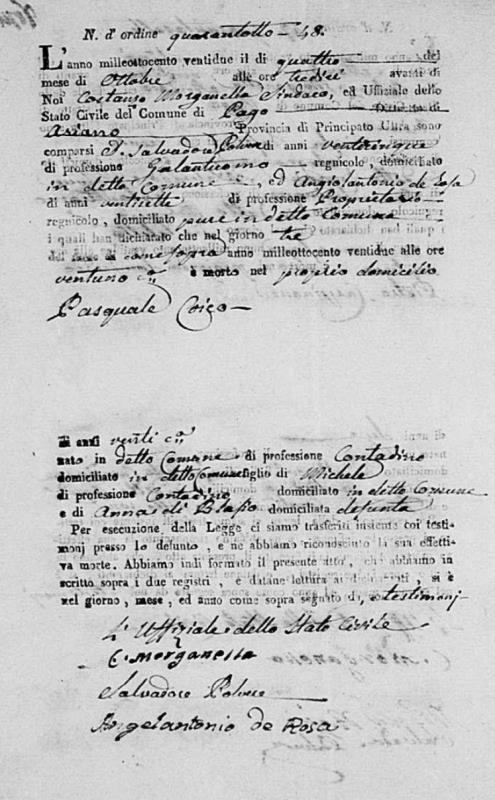 N. d'ordine quarantotto - 48.
L'anno milleottocento ventidue il di quattro del
mese di Ottobre alle ore tredici avanti di
Noi Costanzo Morganella Sindaco, ed Uffiziale dello
Stato Civile del Comune di Pago Distretto di
Ariano Provincia di Principato Ultra sono
comparsi D. Salvadore Polvere di anni venticinque
di professione Galantuomo regnicolo, domiciliato
in detto Comune, ed Angiolantonio de Rosa
di anni ventisette di professione Proprietario
regnicolo, domiciliato pure in detto Comune
i quali han dichiarato che nel giorno tre
del mese di come sopra anno milleottocento ventidue alle ore
ventuno è morto nel proprio domicilio
Pasquale
di anni venti
nato in detto Comune di professione Contadino
domiciliato in detto Comune figlio di Michele
di professione Contadino domiciliato in detto Comune
e di Anna di Blasio domiciliata defunta
Per esecuzione della Legge ci siamo trasferiti insieme coi testi-
monj presso lo defunto, e ne abbiamo riconosciuto la sua effetti-
va morte. Abbiamo indi formato il presente atto, che abbiamo in-
scritto sopra i due registri, e datane lettura ai dichiaranti, si è
nel giorno, mese, ed anno come sopra segnato da testimonj
L'Uffiziale dello Stato Civile
C. Morganella
Salvadore Polvere
Angelantonio de Rosa